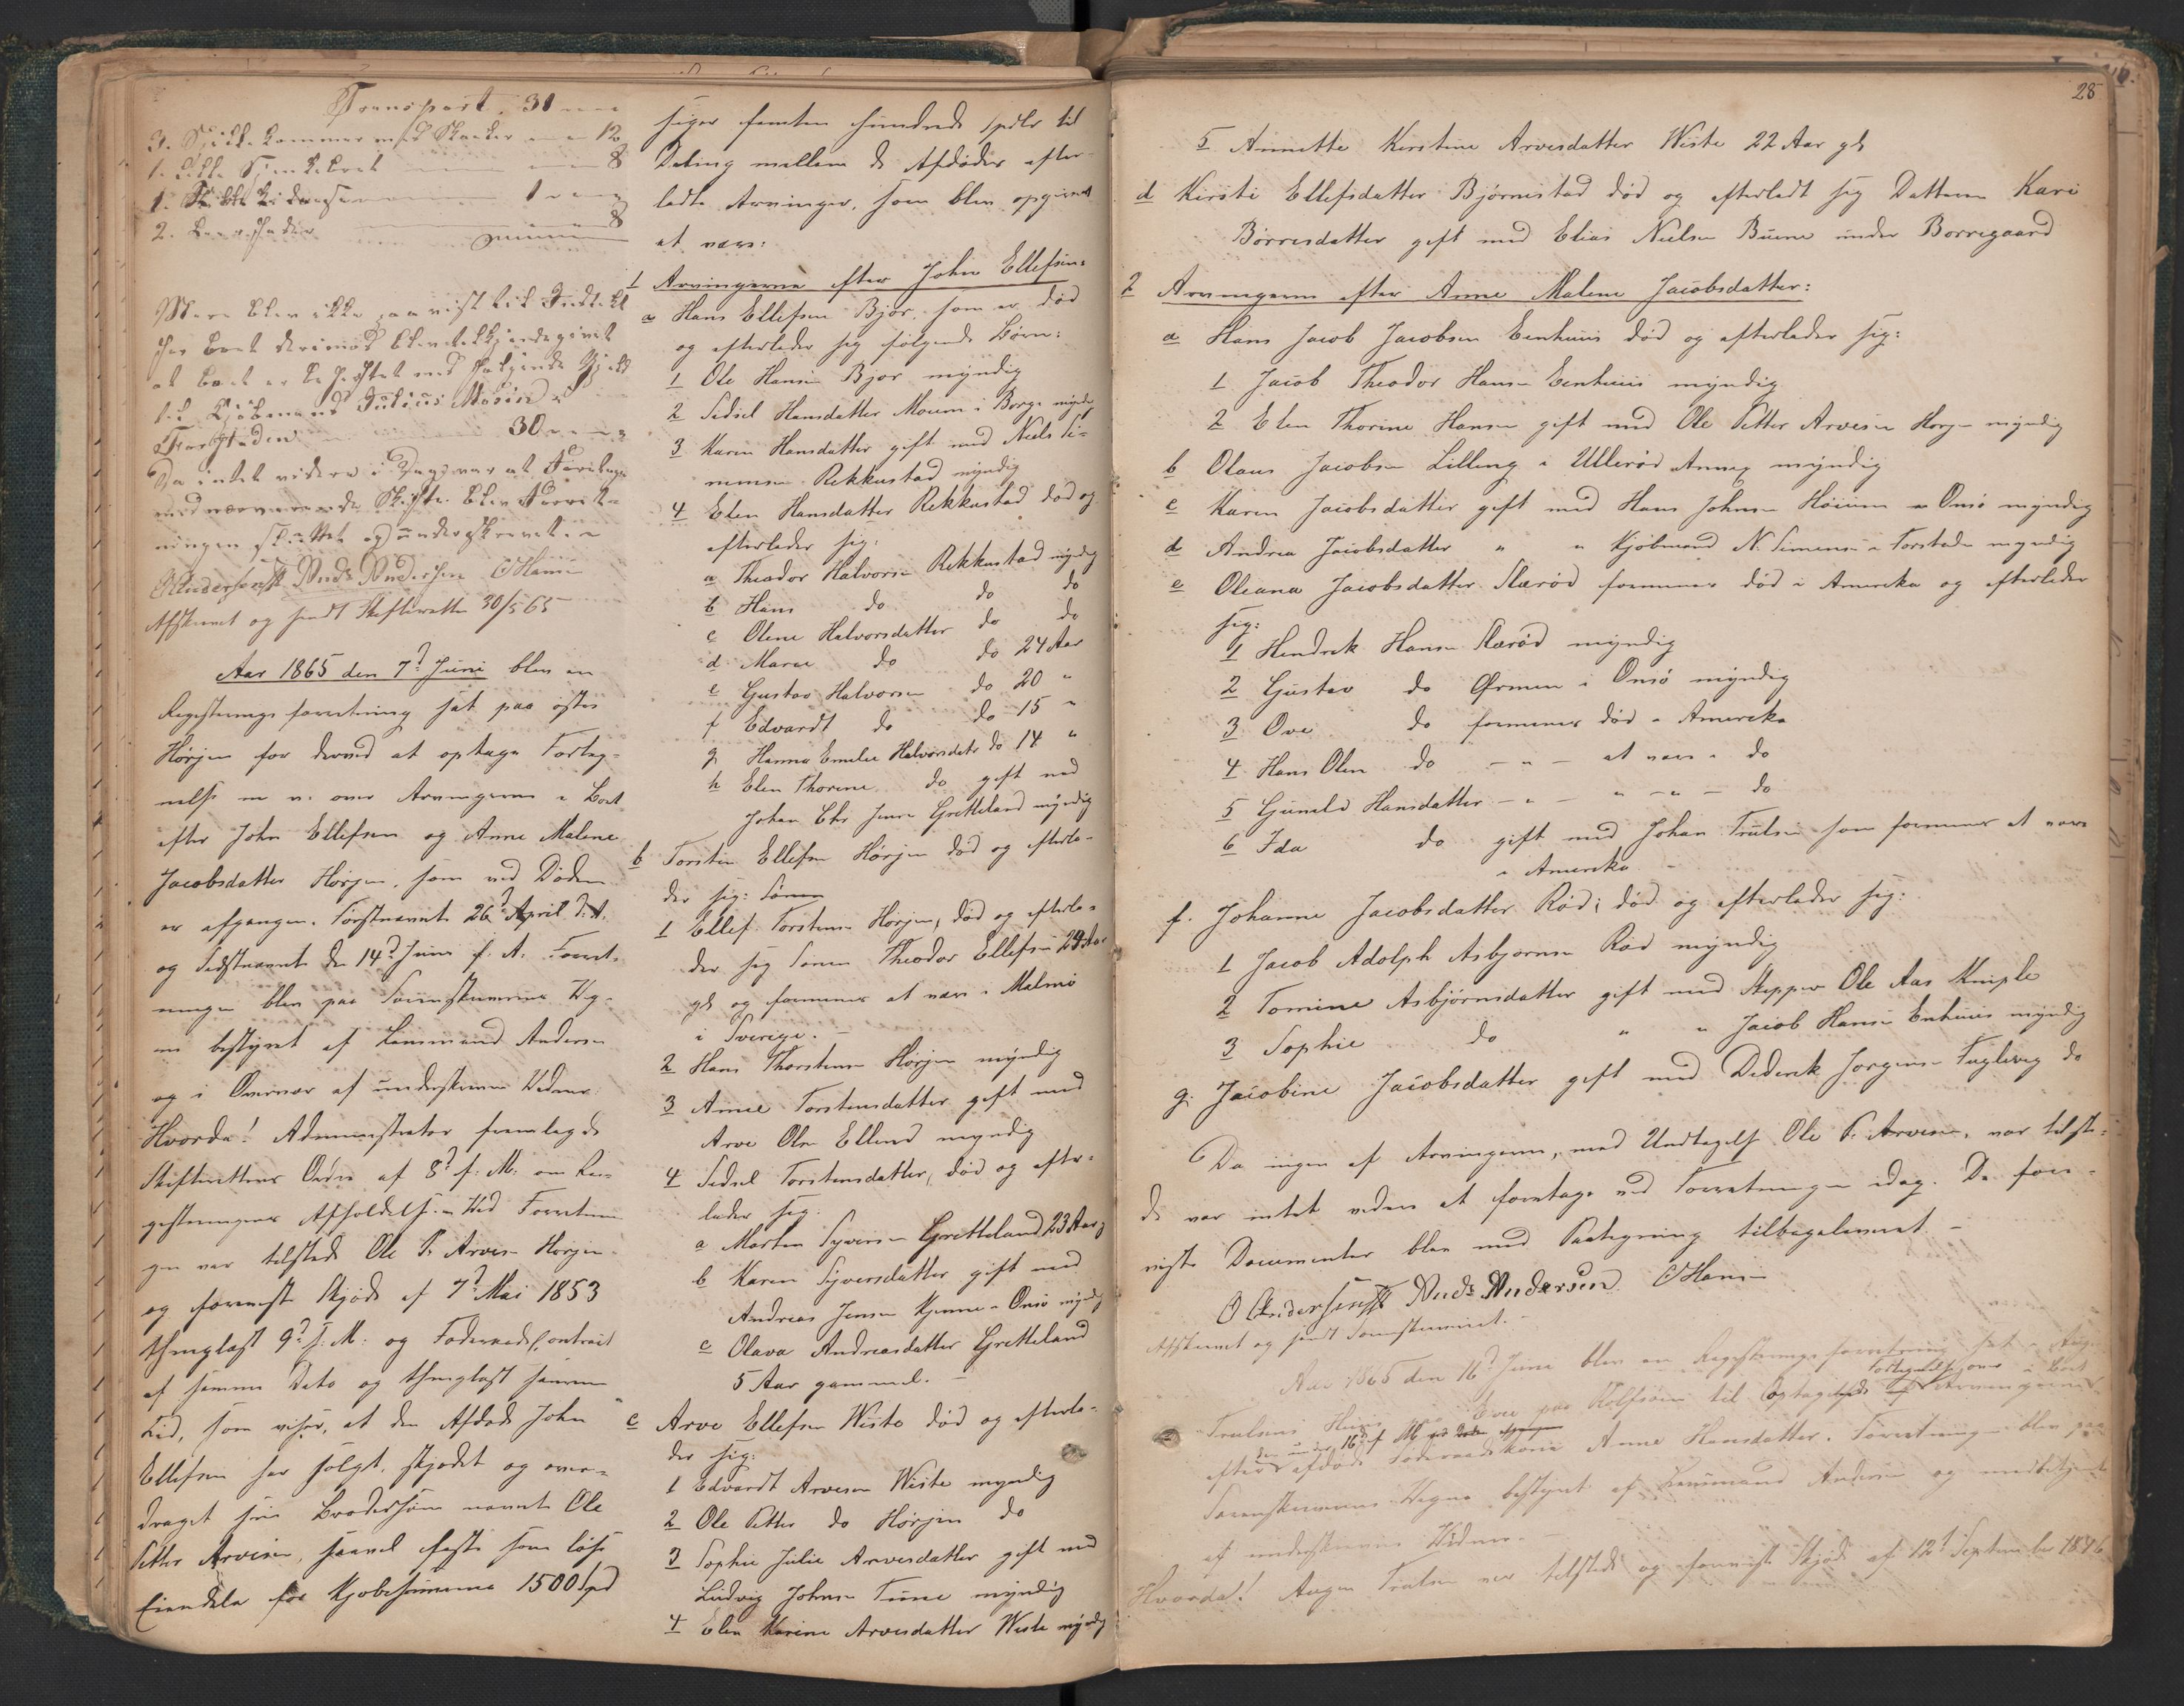 Transport 31
3. Stikkekammer med Skaader 12
1. Lidle 8
1. 1
2. 8
Mere blev ikke paavist til Indtekt
for Boet derimod blev tilkjendegivet
at Boet er beheftet med følgende Gjeld
til Kjøbmand Julius i
Torsgaden 30
Da intet videre i Dag var at Foretage
ved nærværende Skifte blev Forret-
ningen sluttet og underskreven
OAndersen Ands Andersen CHansen
Afskrevet og sendt Skifteretten 30/5 65
Aar 1865 den 7d Juni blev en
Registrerings forretning sat paa østre
Hørjen for derved at optage Forteg-
nelse m. v. over Arvingerne i Boet
efter John Ellefsen og Anne Malene
Jacobsdatter Horjen, som ved Døden
er afgangen. Førstnævnte 26d April d. A.
og Sidstnævnte den 14d Juni f. A. Forret-
ningen blev paa Sorenskriverens Veg-
ne bestyret af Lensmand Andersen
og i Overvær af underskrevne Vidner.
Hvorda! Administrator fremlagde
Skifterettens Ordre af 8d f. M. om Re-
gistreringens Afholdelse. Ved Forretnin-
gen var tilstede Ole P. Arvesen Horjen
og foreviste Skjøde af 7d Mai 1853
thinglæst 9d s. M. og Føderaadscontract
af samme Dato og thinglæst samme
Tid, som viser, at den Afdøde John
Ellefsen har solgt, skjødet og over-
draget sin Brodersøn nævnte Ole
Petter Arvesen, saavel faste som løse
Eiendele for Kjøbesummen 1500 Spd
siger femten hundrede spdlr til
Deling mellem de Afdødes efter-
ladte Arvinger, som blev opgivet
at være:
1 Arvingerne efter John Ellefsen:
a Hans Ellefsen Bjør, som er død
og efterlader sig følgende Børn:
1 Ole Hansen Bjor myndig
2 Sidsel Hansdatter Moum i Borge myndig
3 Karen Hansdatter gift med Niels Si-
mensen Rekkustad myndig
4 Elen Hansdatter Rekkustad død og
efterlader sig:
a Theodor Halvorsen Rekkustad myndig
b Hans do do do
c Olene Halvorsdatter do do
d Maren do do 24 Aar
e Gustav Halvorsen do 20 "
f Edvardt do do 15 "
g Hanna Emelie Halvorsdatr do 14 "
h Elen Thorine do gift med
Johan Chr Jensen Gretteland myndig
b Torsten Ellefsen Hørjen død og efterla-
der sig: Sønnen
1 Ellef Torstensen Horjen, død og efterla-
der sig Sønnen Theodor Ellefsen 29 Aar
gl og formenes at være i Malmø
i Sverige. –
2 Hans Thorstensen Hørjen myndig
3 Anne Torstensdatter gift med
Arve Olsen Ellend myndig
4 Sidsel Torstensdatter, død og efter-
lader sig
a Morten Syversen Gretteland 23 Aar
b Karen Syversdatter gift med
Andreas Jensen Kjenne i Onsø myndig
c Olava Andreasdatter Gretteland
5 Aar gammel. –
c Arve Ellefsen Wiste død og efterla-
der sig:
1 Edvardt Arvesen Wiste myndig
2 Ole Petter do Hørjen do
3 Sophie Julie Arvesdatter gift med
Ludvig Johnsen Tune myndig
4 Elen Karine Arvesdatter Wiste myndig
28
5 Annette Kirstine Arvesdatter Wiste 22 Aar gl
d Kirsti Ellefsdatter Bjørnestad død og efterladt sig Datteren Kari
Børresdatter gift med Elias Nielsen Buene under Borregaard
2 Arvingerne efter Anne Malene Jacobsdatter:
a Hans Jacob Jacobsen Eenhuus død og efterlader sig:
1 Jacob Theodor Hansen Eenhuus myndig
2 Elen Thorine Hansen gift med Ole Petter Arvesen Horjen myndig
b Olaus Jacobsen Lilleng i Ullerøs Annex myndig
c Karen Jacobsdatter gift med Hans Johnsen Høium i Onsø myndig
d Andrea Jacobsdatter " " Kjøbmand N. Simensen i Forstaden myndig
e Oliana Jacobsdatter Rærød formenes død i Amerika og efterlader
sig:
1 Hendrek Hansen Rærød myndig
2 Gustav do Ørmen i Onsø myndig
3 Ove do formenes død i Amerika
4 Hans Olen do – " – at være i do
5 Gunild Hansdatter – " – " – " – do
6 Ida do gift med Johan Trulsen som formenes at være
i Amerika –
f. Johanne Jacobsdatter Rød; død og efterlader sig:
1 Jacob Adolph Asbjørnsen Rød myndig
2 Tomine Asbjørnsdatter gift med Skipper Ole Aas Kniple
3 Sophie do " " Jacob Hansen Enhuus myndig
g. Jacobine Jacobsdatter gift med Dederek Jorgensen Fuglevig do
Da ingen af Arvingerne, med Undtagelse Ole P. Arvesen, var tilste-
de var intet videre at foretage ved Forretningen idag. De fore-
viste Documenter blev med Paategning tilbageleveret. –
OAndersen Ands Andersen CHansen
Afskrevet og sendt Sorenskriveret. –
Aar 1865 den 16d Juni blev en Registrerings forretning sat i August
Trulsens Huus paa Evie paa Rolfsøen til Optagelse af Fortegnelse over Arvingerne i Boet
efter den under 16d f. M. ved Døden afgangne afdøde Føderaadskone Anne Hansdatter. Forretningen blev paa
Sorenskriverens Vegne bestyret af Lensmand Andersen og medbetjent
af underskrevne Vidner. –
Hvorda! August Trulsen var tilstede og foreviste Skjøde af 12d September 1846